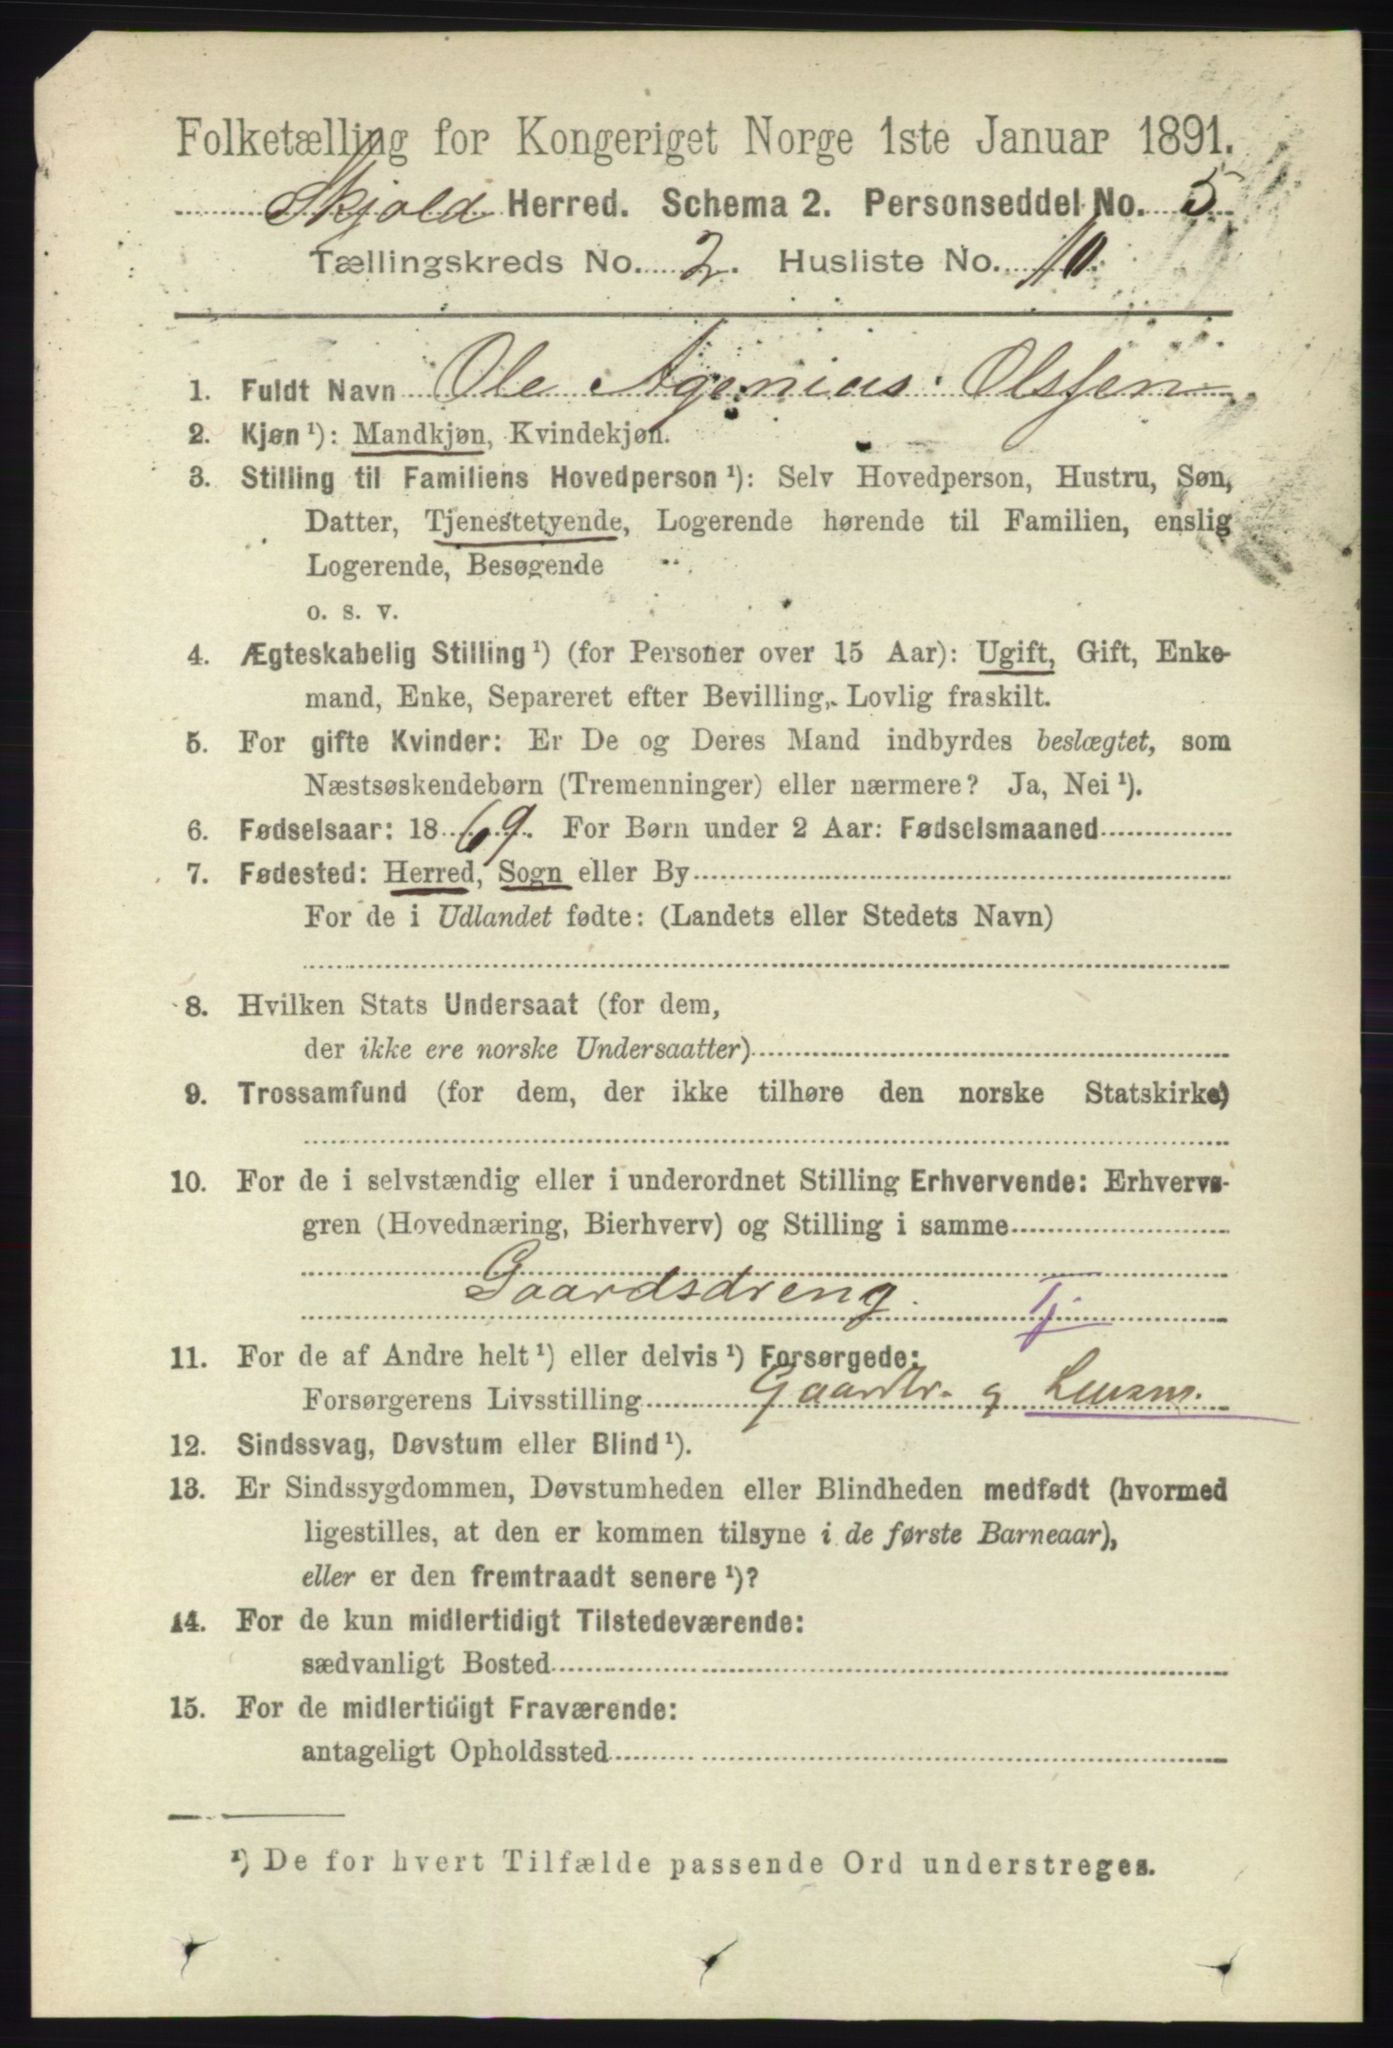 Folketælling for Kongeriget Norge 1ste Januar 1891.
Skjold Herred. Schema 2. Personseddel No. 5
Tællingskreds No. 2. Husliste No. 10.
1. Fuldt Navn Ole Agenius Olssen
2. Kjøn ¹): Mandkjøn, Kvindekjøn.
3. Stilling til Familiens Hovedperson ¹): Selv Hovedperson, Hustru, Søn,
Datter, Tjenestetyende, Logerende hørende til Familien, enslig
Logerende, Besøgende
o. s. v.
4. Ægteskabelig Stilling ¹) (for Personer over 15 Aar): Ugift, Gift, Enke-
mand, Enke, Separeret efter Bevilling, Lovlig fraskilt.
5. For gifte Kvinder: Er De og Deres Mand indbyrdes beslægtet, som
Næstsøskendebørn (Tremenninger) eller nærmere? Ja, Nei ¹).
6. Fødselsaar: 1869. For Børn under 2 Aar: Fødselsmaaned
7. Fødested: Herred, Sogn eller By
For de i Udlandet fødte: (Landets eller Stedets Navn)
8. Hvilken Stats Undersaat (for dem,
der ikke ere norske Undersaatter)
9. Trossamfund (for dem, der ikke tilhøre den norske Statskirke)
10. For de i selvstændig eller i underordnet Stilling Erhvervende: Erhvervs-
gren (Hovednæring, Bierhverv) og Stilling i samme
Gaardsdreng. Tj.
11. For de af Andre helt ¹) eller delvis ¹) Forsørgede:
Forsørgerens Livsstilling Gaardbr. g
12. Sindssvag, Døvstum eller Blind ¹).
13. Er Sindssygdommen, Døvstumheden eller Blindheden medfødt (hvormed
ligestilles, at den er kommen tilsyne i de første Barneaar),
eller er den fremtraadt senere ¹)?
14. For de kun midlertidigt Tilstedeværende:
sædvanligt Bosted
15. For de midlertidigt Fraværende:
antageligt Opholdssted
¹) De for hvert Tilfælde passende Ord understreges.